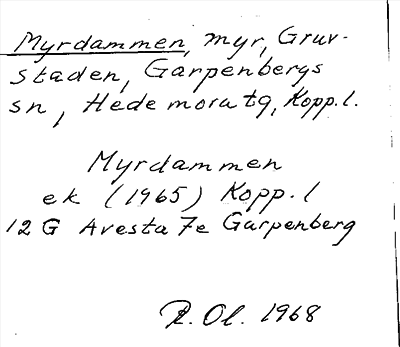 Myrdammen, myr, Gruv-
staden, Garpenbergs
sn, Hedemora tg, Kopp. l.
Myrdammen
ek (1965) Kopp. l
12 G Avesta 7e Garpenberg
R. Ol. 1968